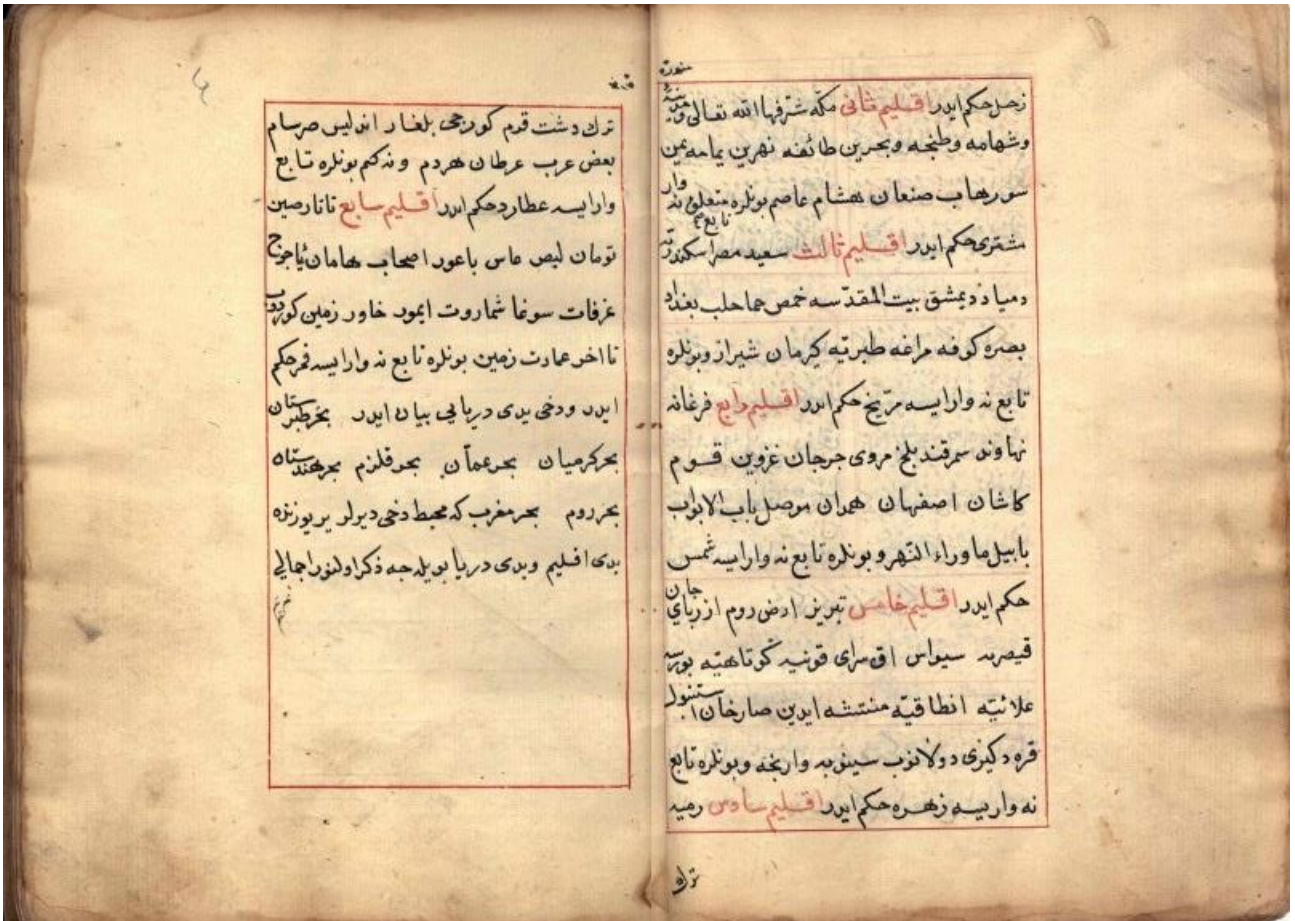 منوره
زحل حكم ايدر اقليم ثانى مكه شرفها الله تعالى ومدينه
وشهامه وطنجه وبحرين طائفه نهرين يمامه يمن
سورهاب صنعان هشام عاصم بونلره متعلق نه وار
تابع
مشترى حكم ايدر اقليم ثالث سعيد مصر اسكندريه
دمياد ديمشق بيت المقدسه خمص حما حلب بغداد
بصره كوفه مراغه طبرتيه كيرمان شيراز وبونلره
تابع نه وارايسه مريخ حكم ايدر اقليم رابع فرغانه
نهاوند سمرقند بلخ مروى جرجان غزوين قوم
كاشان اصفهان همدان موصل باب الابواب
بابيل ماوراء النهر وبونلره تابع نه وارايسه شمس
حكم ايدر اقليم خامس تبريز ارض روم ازربايجان
قيصريه سيواس اق سراى قونيه كوتاهيه بورسه
علائيه انطاقيه منتشه ايدين صارخان استنبول
قره دكيزى دولانوب سينوبه وارنجه وبونلره تابع
نه واريسه زهره حكم ايدر اقليم سادس رميه
ترك
ترك دشت قدم كورجى بلغار اندليس صرسام
بعض عرب عرطان هردم ونه كم بونلره تابع
وارايسه عطارد حكم ايدر اقليم سابع تاتار صين
تومان ليص عاس باعور اصحاب هامان ياجوج
عرفات سوغا شماروت ايمود خاور زمين كوردوب
تا اخر عمارت زمين بونلره تابع نه وارايسه قمر حكم
ايدر ودخى يدى دريايى بيان ايدر بحر طبرستان
بحر كرميان بحر عمان بحر قلزم بحر هندستان
بحر روم بحر مغرب كه محيط دخى ديرلر ير يوزنده
يدى اقليم ويدى دريا بويله جه ذكر اولنور اجمالى